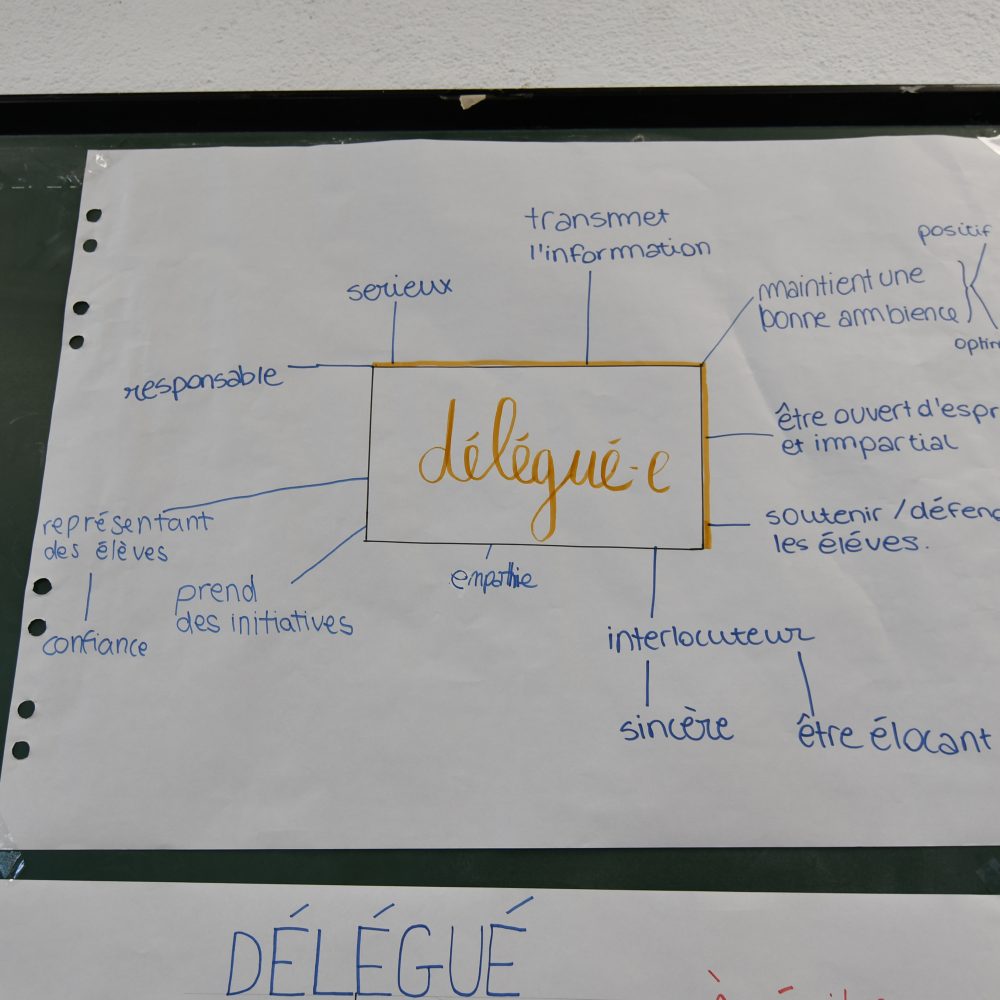 transmet
l'information
positif
serieux
maintient une
bonne ambience
responsable
délégué·e
être ouvert
et impartial
représentant
des élèves
soutenir /
les éléves.
empathie
prend
des initiatives
confiance
interlocuteur
sincère
être élocant
DÉLÉGUÉ